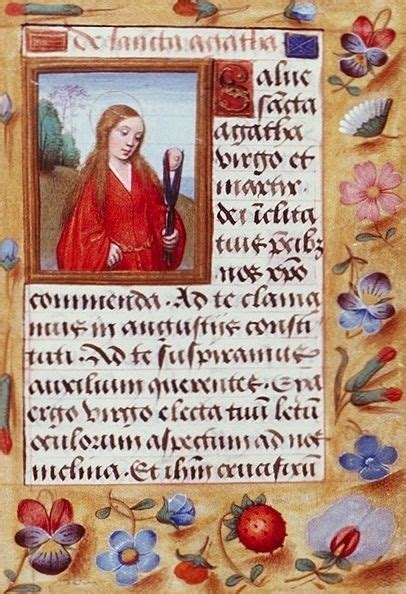 De sancta agatha
Salue
sancta
agatha
virgo et
martir
dei īclita
tuis p̄cibꝫ
nos xp̄o
commenda. Ad te clama
mus in angustijs consti
tuti. Ad te suspiramus
auxilium querentes. Eya
ergo virgo electa tuū letū
oculorum aspectum ad nos
inclina. Et ihm̄ crucifixū